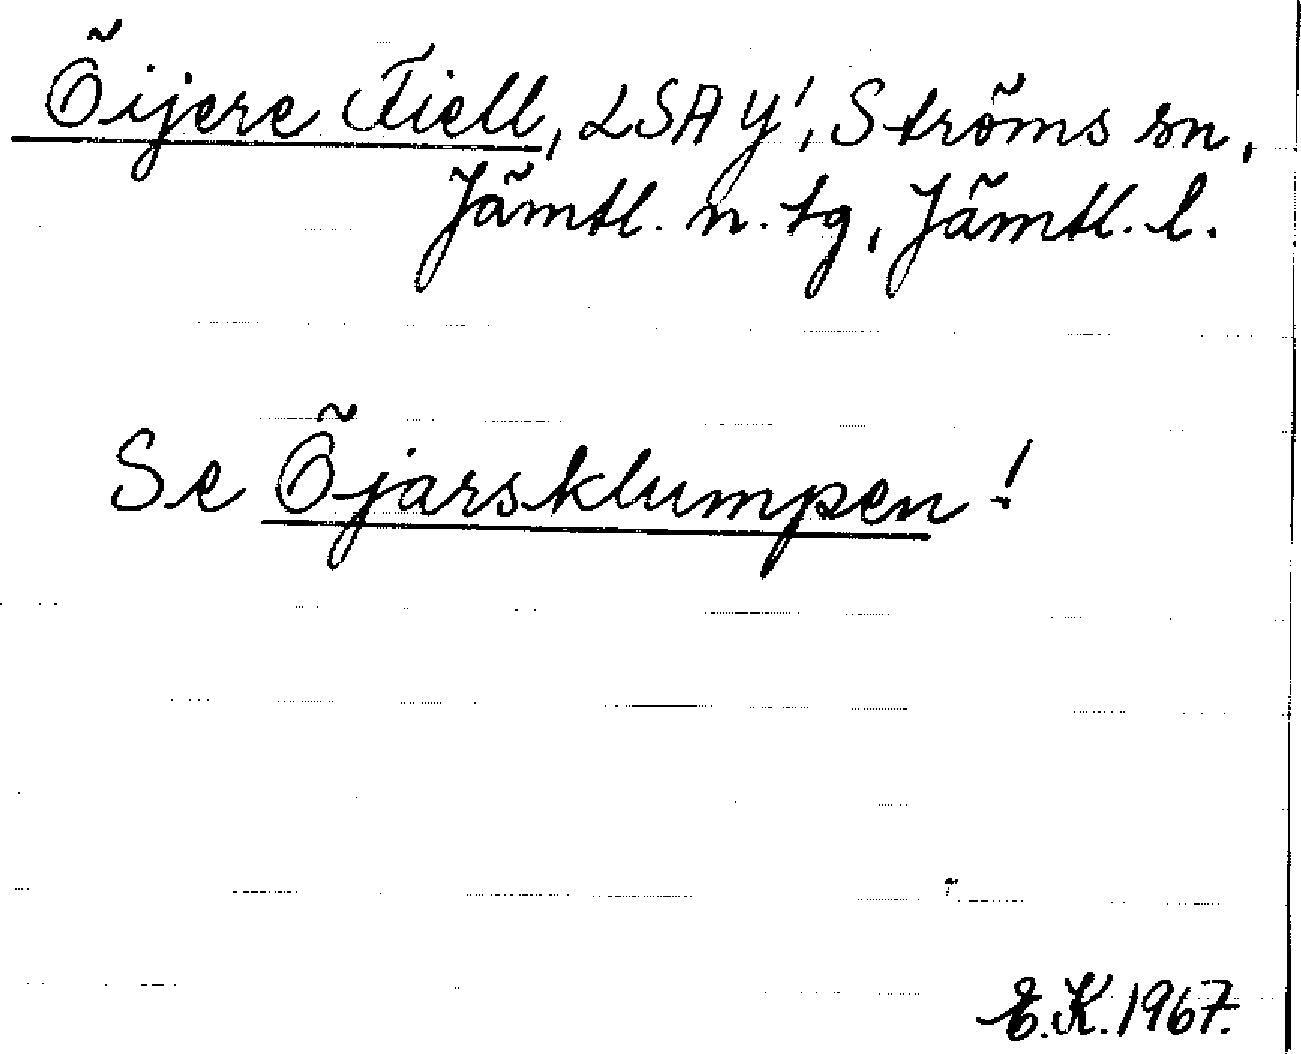 Öijere Fiell, LSA Y', Ströms sn,
Jämtl. n. tg, Jämtl. l.
Se Öjarsklumpen!
E.K. 1967.